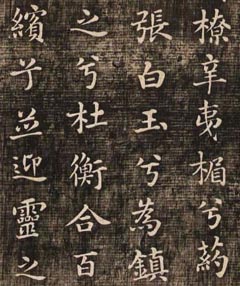 橑辛夷楣兮葯
張白玉兮為鎮
之兮杜衡合百
繽兮並迎靈之